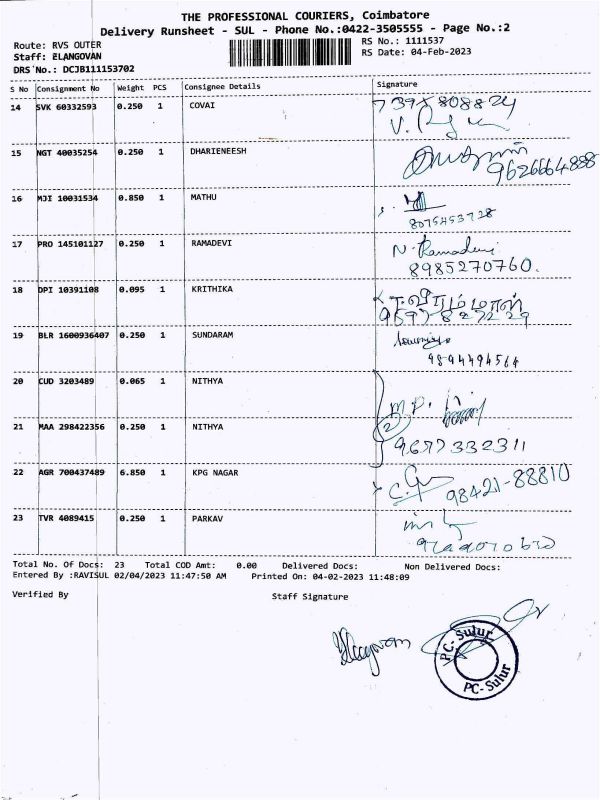 THE PROFESSIONAL COURIERS, Coimbatore
Delivery Runsheet - SUL - Phone No.:0422-3505555 - Page No.:2
Route: RVS OUTER RS No.: 1111537
Staff: ELANGOVAN RS Date: 04-Feb-2023
DRS No.: DCJB111153702
S No Consignment No Weight PCS Consignee Details Signature
14 SVK 60332593 0.250 1 COVAI
15 NGT 40035254 0.250 1 DHARIENEESH 9626664888
16 MJI 10031534 0.850 1 MATHU
8075453728
17 PRO 145101127 0.250 1 RAMADEVI N. Ramadevi
8985270760.
18 DPI 10391108 0.095 1 KRITHIKA
19 BLR 1600936407 0.250 1 SUNDARAM
9894494564
20 CUD 3203489 0.065 1 NITHYA M.P.
21 MAA 298422356 0.250 1 NITHYA 2
9677332311
22 AGR 700437489 6.850 1 KPG NAGAR 98421-88810
23 TVR 4089415 0.250 1 PARKAV
Total No. Of Docs: 23 Total COD Amt: 0.00 Delivered Docs: Non Delivered Docs:
Entered By :RAVISUL 02/04/2023 11:47:50 AM Printed On: 04-02-2023 11:48:09
Verified By Staff Signature
Elangovan
PC-Sulur
PC-Sulur